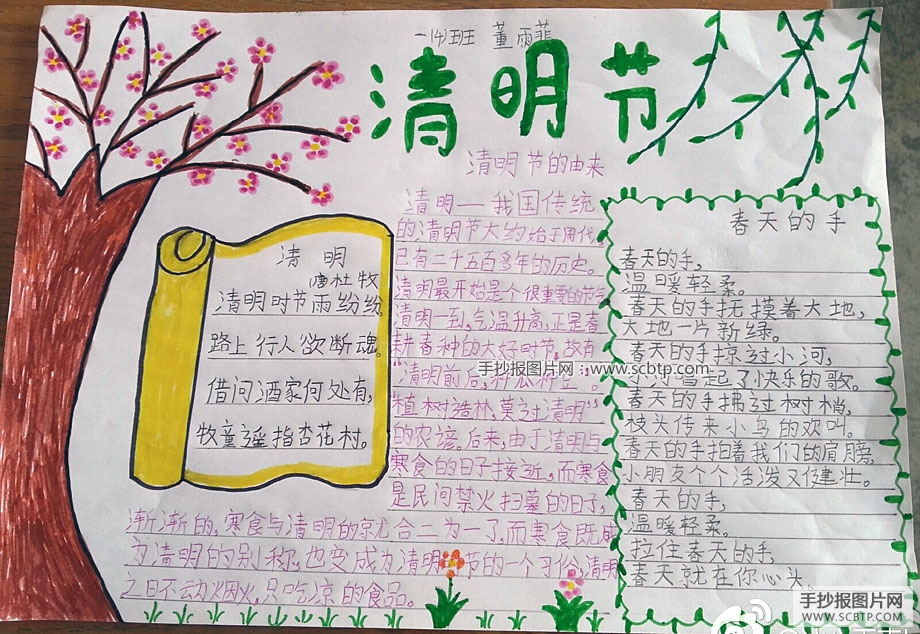 一(4)班 董雨菲
清明节
清明节的由来
清明一我国传统
的清明节大约始于周代,
已有二千五百多年的历史。
清明最开始是个很重要的节气,
清明一到,气温升高,正是春
耕春种的大好时节,故有
"清明前后,种瓜种豆"。
"植树造林,莫过清明"
的农谚。后来,由于清明与
寒食的日子接近,而寒食
是民间禁火扫墓的日子,
渐渐的,寒食与清明的就合二为一了,而寒食既成
为清明的别称,也变成为清明节的一个习俗,清明
之日不动烟火,只吃凉的食品。
清 明
唐杜牧
清明时节雨纷纷,
路上行人欲断魂。
借问酒家何处有,
牧童遥指杏花村。
春天的手
春天的手,
温暖轻柔。
春天的手抚摸着大地,
大地一片新绿。
春天的手掠过小河,
小河唱起了快乐的歌。
春天的手拂过树梢,
枝头传来小鸟的欢叫。
春天的手拍着我们的肩膀,
小朋友个个活泼又健壮。
春天的手,
温暖轻柔。
拉住春天的手,
春天就在你心头。
手抄报图片网:www.scbtp.com
手抄报图片网
WWW.SCBTP.COM